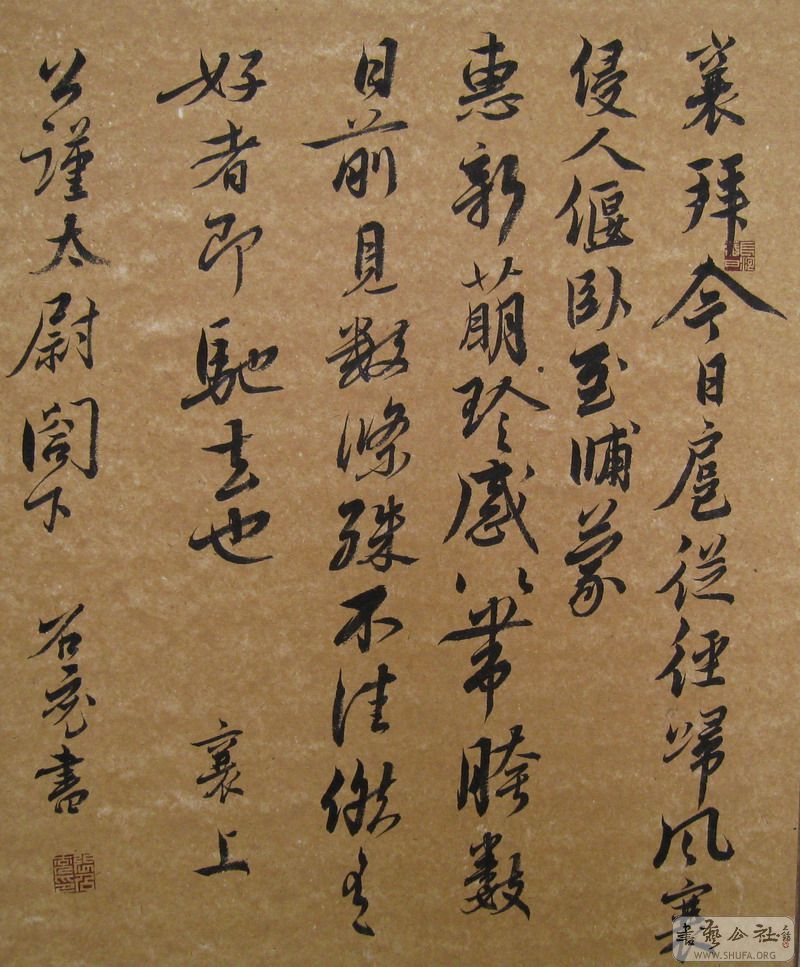 襄拜今日扈從徑歸風寒
侵人偃臥至晡蒙
惠新萌珍感〻帶胯數
日前見數條殊不佳候有
好者即馳去也 襄上
公謹太尉閤下 書
書藝公社
WWW.SHUFA.ORG